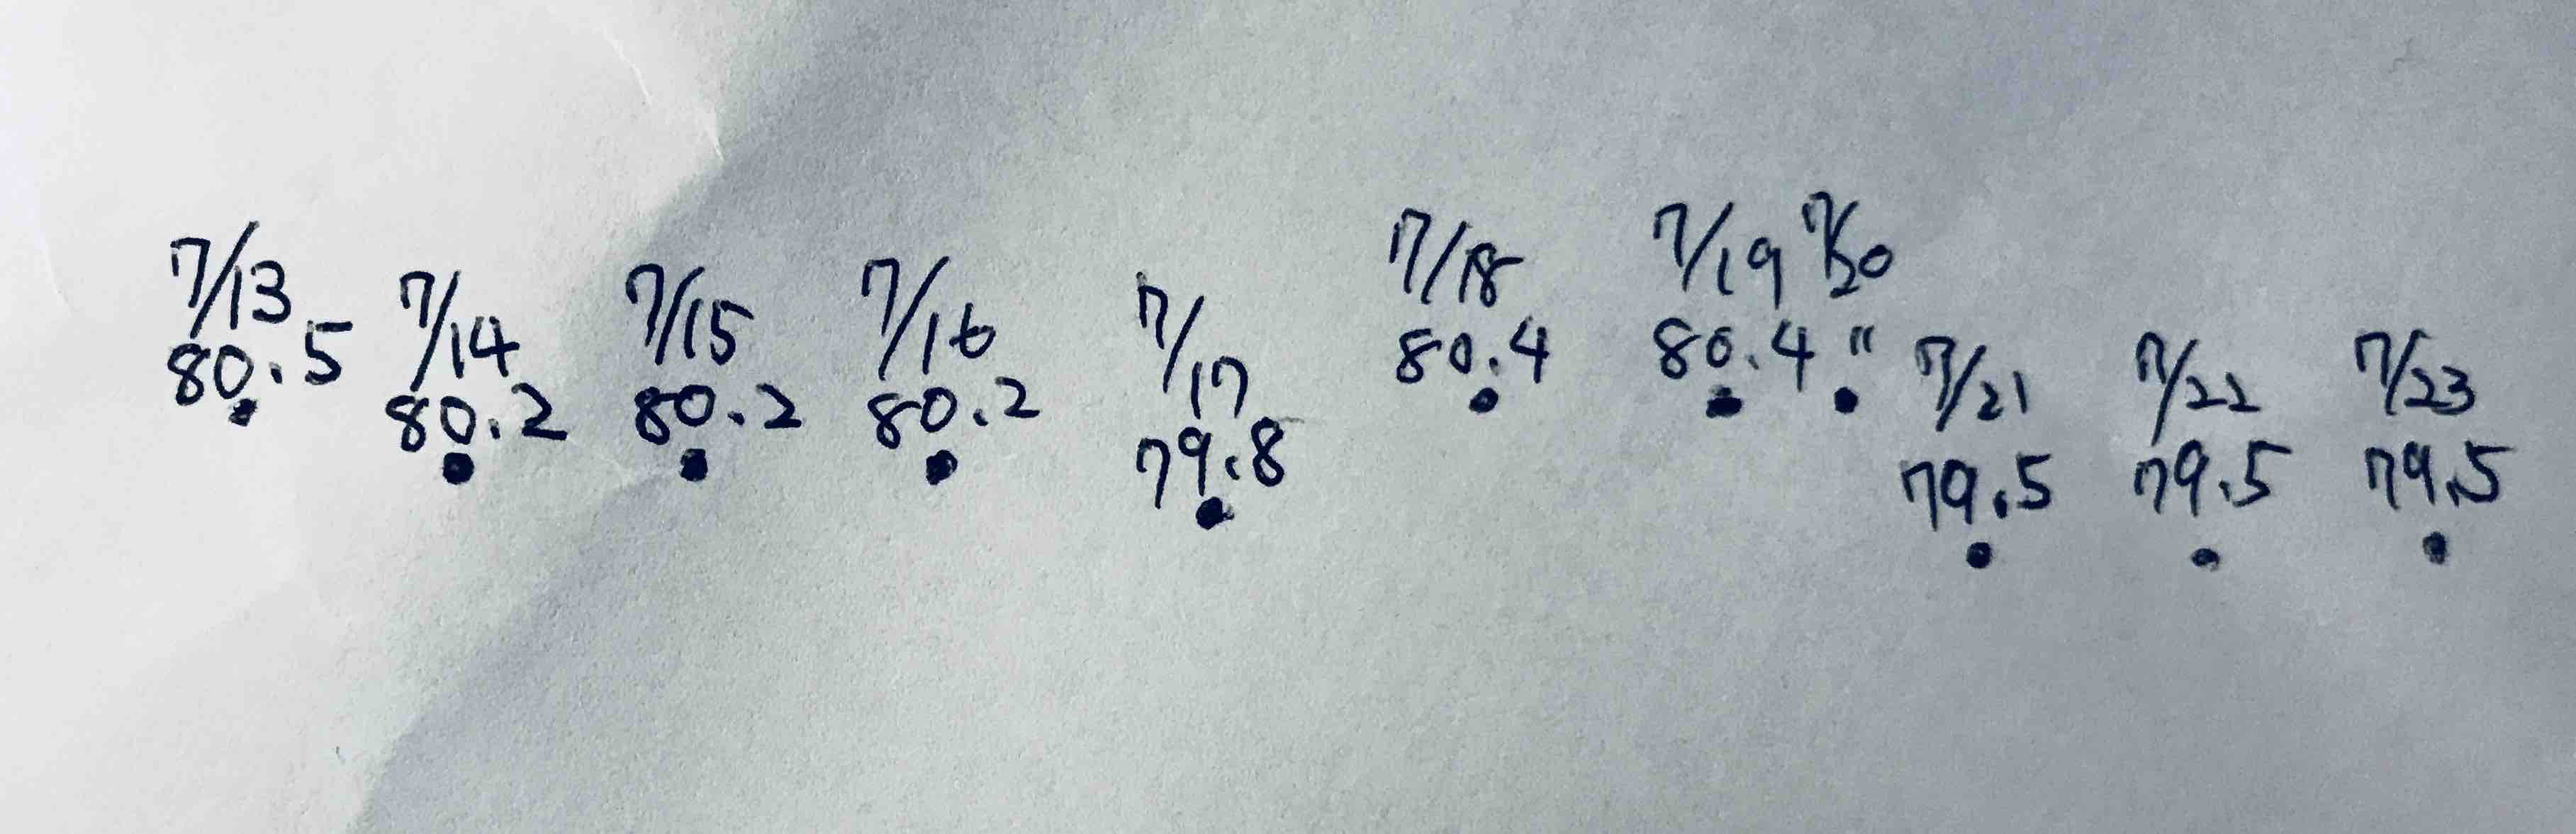 7/13
80.5
7/14
80.2
7/15
80.2
7/16
80.2
7/17
79.8
7/18
80.4
7/19
80.4
7/20
"
7/21
79.5
7/22
79.5
7/23
79.5